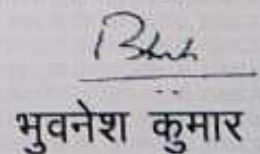 भुवनेश कुमार